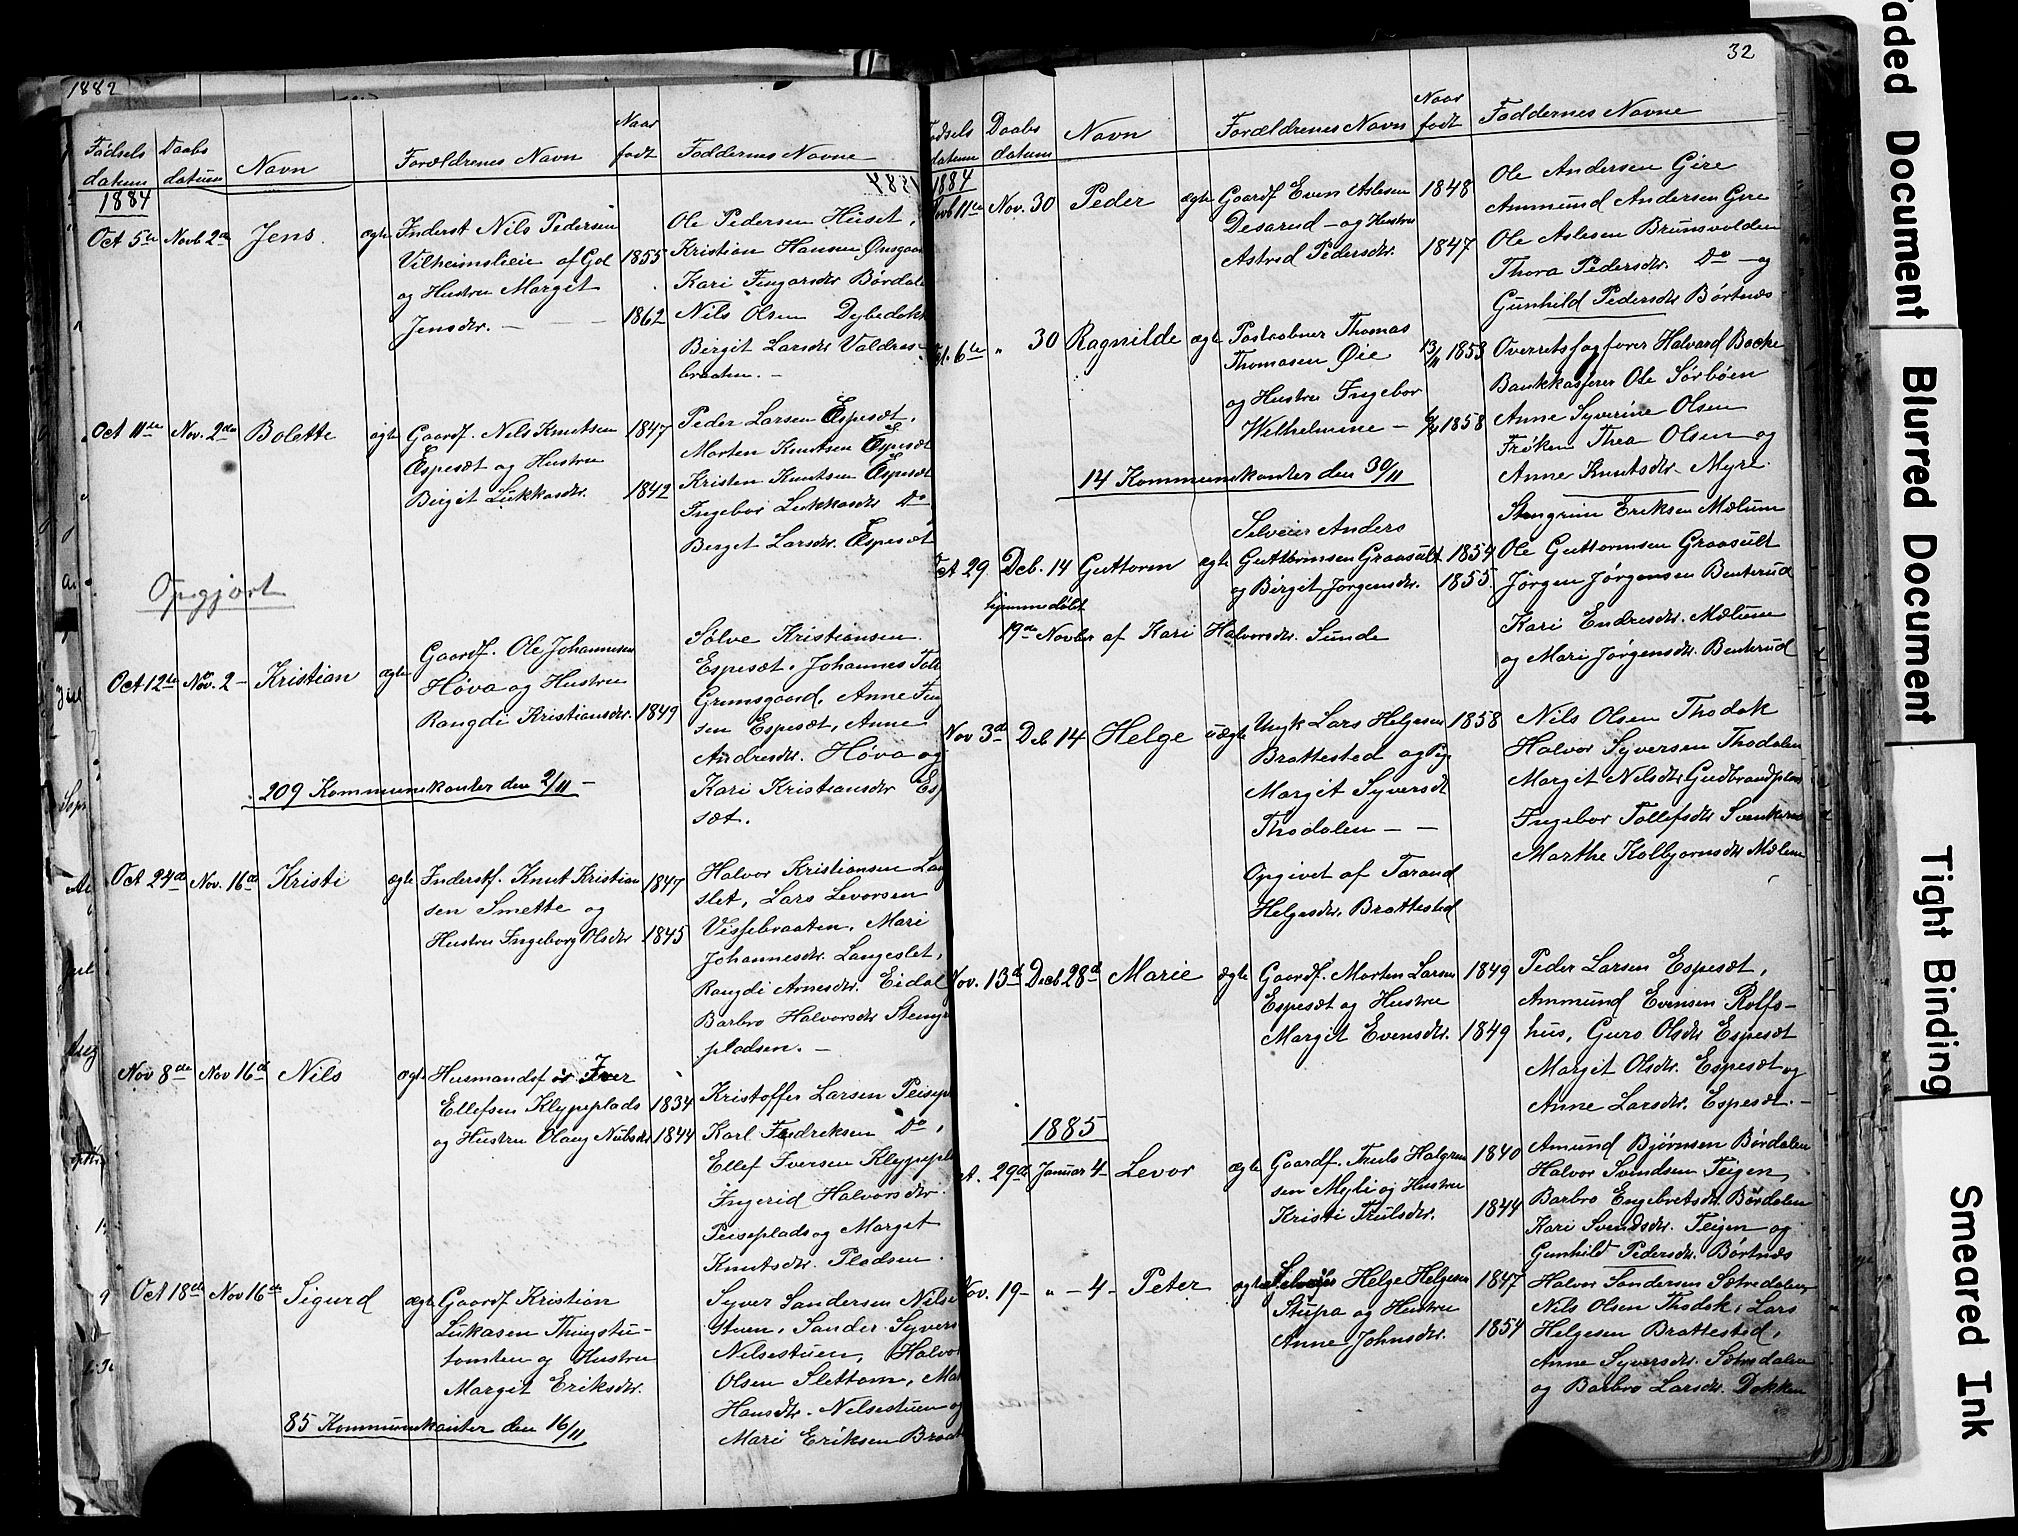 1882
Fødsels datum
Daabs datum
Navn
Forældrenes Navn
Naar født
Faddernes Navne
1884
Oct 5te Novb 2den Jens. ægte Inderst Nils Pedersen
Vilheimslieie af Gol 1855
og Hustru Margit
Jensdtr. — — 1862
Ole Pedersen Huset,
Kristian Hansen
Kari Fingarsdtr Børdale
Nils Olsen Dybedokk
Birgit Larsdtr Valdres-
braaten. —
Oct 11te Nov. 2den Bolette ægte Gaardf. Nels Knutsen 1847
Espesæt og Hustru
Birgit Lukkasdtr. 1842
Peder Larsen Espesæt,
Morten Knutsen Espesæt
Kristen Knutsen Espesæt
Ingebor Lukkasdtr Do
Berget Larsdtr. Espesæt
Opgjort
Oct 12te Nov. 2 — Kristian ægte Gaardf. Ole Johannesen
Høva og Hustru
Rangdi Kristiansdtr. 1849
Sølve Kristiansen
Espesæt. Johannes
Grimsgaard, Anne
sen Espesæt, Anne
Andresdtr. Høva og
Kari Kristiansdtr Es
sæt.
209 Kommunikanter den 2/11 —
Oct 24de Nov. 16de Kristi ægte Inderstf. Knut Kristian 1847
sen Smette og
Hustru Ingeborg Olsdtr 1845
Halvor Kristiansen Lan
slet, Lars Levorsen
Vissebraaten, Mari
Johannesdtr. Langeslet,
Rangdi Arnesdtr. Eidal
Barbro Halvorsdtr
pladsen. —
Nov 8de Nov 16de Nils ægte Husmandsf Iver
Ellefsen Klyppeplads 1834
og Hustru Olaug Nubsdtr 1844
Kristoffer Larsen Peisepl
Karl Fredriksen Do,
Ellef Iversen Klyppepl
Ingerid Halvorsdtr.
Peiseplads og Marget
Knutsdtr. Pladsen.
Oct 18de Nov 16de Sigurd ægte Gaardf Kristian
Lukasen Thingstu-
tomten og Hustru
Margit Eriksdtr.
Syver Sandersen Nilse
stuen, Sander Syvers
Nilsestuen, Halvor
Olsen Slettom,
Hansdtr. Nilsestuen og
Mari Eriksen Braat
85 Kommunikanter den 16/11
32
Fødsels datum
Daabs datum
Navn
Forældrenes Navn
Naar født
Faddernes Navne
1884
Novb 11te Nov. 30 Peder ægte Gaardf Even Aslesen 1848
Desarud — og Hustru
Astrid Pedersdtr. 1847
Ole Andersen Gire
Ammund Andersen Gire
Ole Aslesen Brunsvolden
Thora Pedersdtr. Do — og
Gunhild Pedersdtr Børtnæs
6te „ 30 Ragnilde ægte Postaabner Thomas
Thomasen Øie 13/11 1853
og Hustru Ingebor
Wilhelmine — 1858
Overretssagfører Halvard Backe
Bankkasserer Ole Sørbøen
Anne Syverine Olsen
Frøken Thea Olsen og
Anne Knutsdtr. Myre.
14 Kommunikanter den 30/11
Oct 29 Deb. 14 Guttorm ægte Selveier Anders
Guttormsen Graasult 1854
og Birgit Jørgensdtr. 1855
hjemmedøbt
19de Novbr af Kari Halvorsdtr. Sunde
Stengrim Eriksen Mælum
Ole Guttormsen Graasult
Jørgen Jørgensen Benterud
Kari Endresdtr. Mælum
og Mari Jørgensdtr. Benterud
Nov 3de Deb 14 Helge uægte Ungk Lars Helgesen 1858
Brattested og Pig
Margit Syversdt
Thodalen — —
Opgivet af Tarand
Helgesdtr. Brattested
Nils Olsen Thodok
Halvor Syversen Thodalen
Margit Nelsdtr Gudbrandsplass
Ingebor Tollefsdtr
Marthe Kolbjørnsdtr Mælum
Nov. 13de Decb 28de Marie ægte Gaardf. Morten Larsen 1849
Espesæt og Hustru
Margit Evensdtr. 1849
Peder Larsen Espesæt,
Ammund Evensen Rolfs-
hus, Guro Olsdtr Espesæt
Margit Olsdtr. Espesæt og
Anne Larsdtr. Espesæt. —
1885
29de Januar 4 — Levor ægte Gaardf. Truls Halgrim 1840
sen Myli og Hustru
Kristi Trulsdtr. 1844
Amund Bjørnsen Børdalen
Halvor Svendsen Teigen
Barbro Engebretsdtr. Børdalen
Kari Svendsdtr. Teigen og
Gunhild Pedersdtr. Børtnæs
Nov. 19 — „ — 4 — Peter ægte Selveier Helge Helgesen 1847
Stupa og Hustru
Anne Johnsdtr. 1854
Halvor Sandersen Sætredalen
Nils Olsen Thodok, Lars
Helgesen Brattested,
Anne Syversdtr. Sætredalen
og Barbro Larsdtr. Dokken
Faded Document
Blurred Document
Tight Binding
Smeared Ink